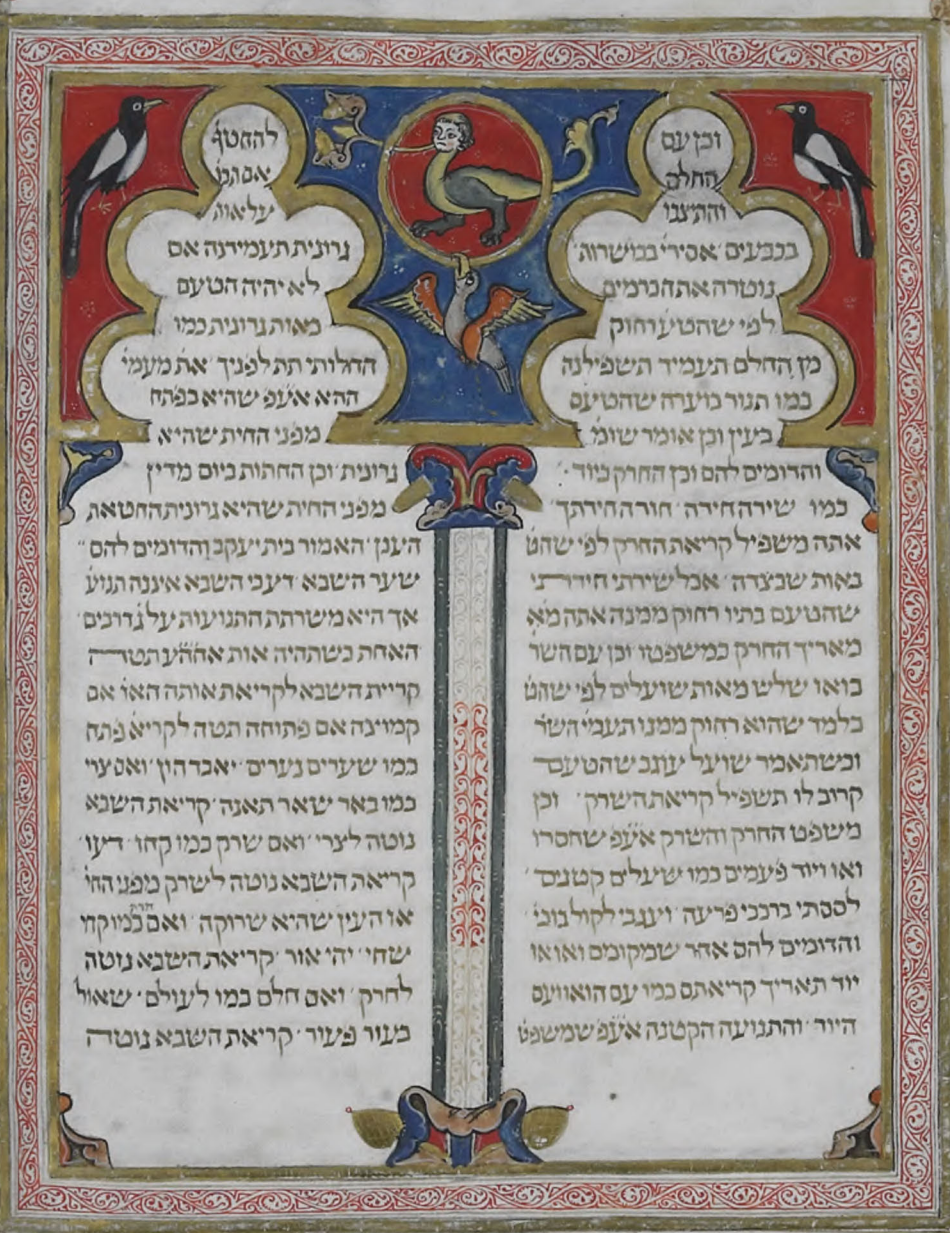 וכן עם
החלם
והתיצבו
בכבעים אסירי בכושרות
נוטרה את הכרמים
לפי שהטע רחוק
מן החלם תעמיד תשפילנה
כמו תנור מערה שהטעם
בעין וכן אומר שומ
והדומים להם וכן החרק ביוד
כמו שירה חירה חורה חירתך
אתה משפיל קריאת החרק לפי שהט
באות שבצדה אבל שירתי חידתי
שהטעם בתיו רחוק ממנה אתה מא
מאריך החרק כמשפטו וכן עם השר
בואו שלש מאות שועלים לפי שהט
בלמד שהוא רחוק ממנו תעמי השר
וכשתאמר שועל עוגב שהטעם
קרוב לו תשפיל קריאת השרק וכן
משפט החרק והשרק אעפ שחסרו
ואו ויוד פעמים כמו שיעלים קטנים
לססתי ברכבי פרעה ועגבי לקול בוכי
והדומים להם אחר שמקומם ואו או
יוד תאריך קריאתם כמו עם הואו ועם
היוד והתנועה הקטנה אעפ שמשפט
להחטף
אם תבו
על אות
גרונית תעמידנה אם
לא יהיה הטעם
באות גרונית כמו
החלותי תת לפניך את מעמי
ההא אעפ שהיא בפתח
מפני החית שהיא
גרונית וכן החתות ביום מדין
מפני החית שהיא גרונית החטאת
הענן האמור בית יעקב והדומים להם
שער השבא דע כי השבא איננה תנוע
אך היא משרתת התנועות על ג דרכים
האחת כשתהיה אות אההע תטה
קריית השבא לקריאת אותה האו אם
קמוצה אם פתוחה תטה לקריא פתח
כמו שערים נערים יאבדהין ואם צרי
כמו באר שאר תאנה קריאת השבא
נוטה לצרי ואם שרק כמו קחו דעו
קריאת השבא נוטה לשרק מפני החי
או העין שהיא שרוקה ואם חרק כמו קחי
שחי יהי אור קריאת השבא נוטה
לחרק ואם חלם כמו לעולם שאול
בעור פעור קריאת השבא נוטה